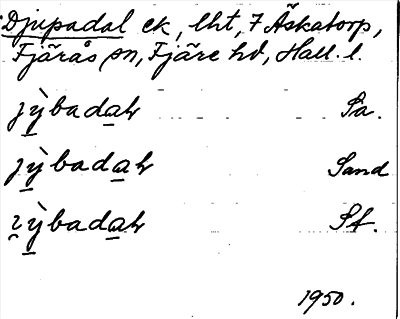 Djupadal ek, lht, 7 Äskatorp,
Fjärås sn, Fjäre hd, Hall. l.
jỳbadaḷ Sa.
jỳbadaḷ Sand
ỳbadaḷ Sf.
1950.